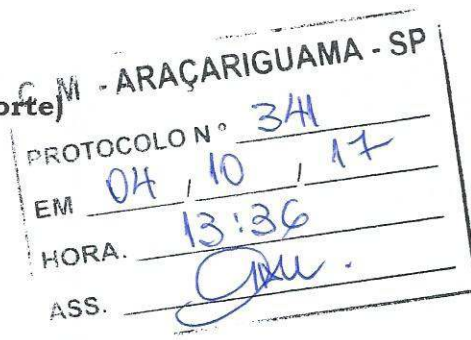 C M - ARAÇARIGUAMA - SP
orte)
PROTOCOLO Nº 341
EM 04 / 10 / 17
HORA. 13:36
ASS.